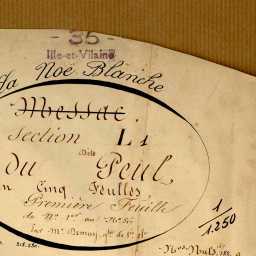 - 35 -
Ille-et-Vilaine
la Noë Blanche
Messac
Section L1
dite
Du Peul
en Cinq Feuilles
Première Feuille
du Nº 1er au Nº
par Mr
1/1.250